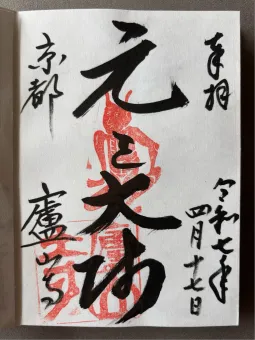 奉拝
令和七年
四月十七日
元三大師
京都
廬山寺